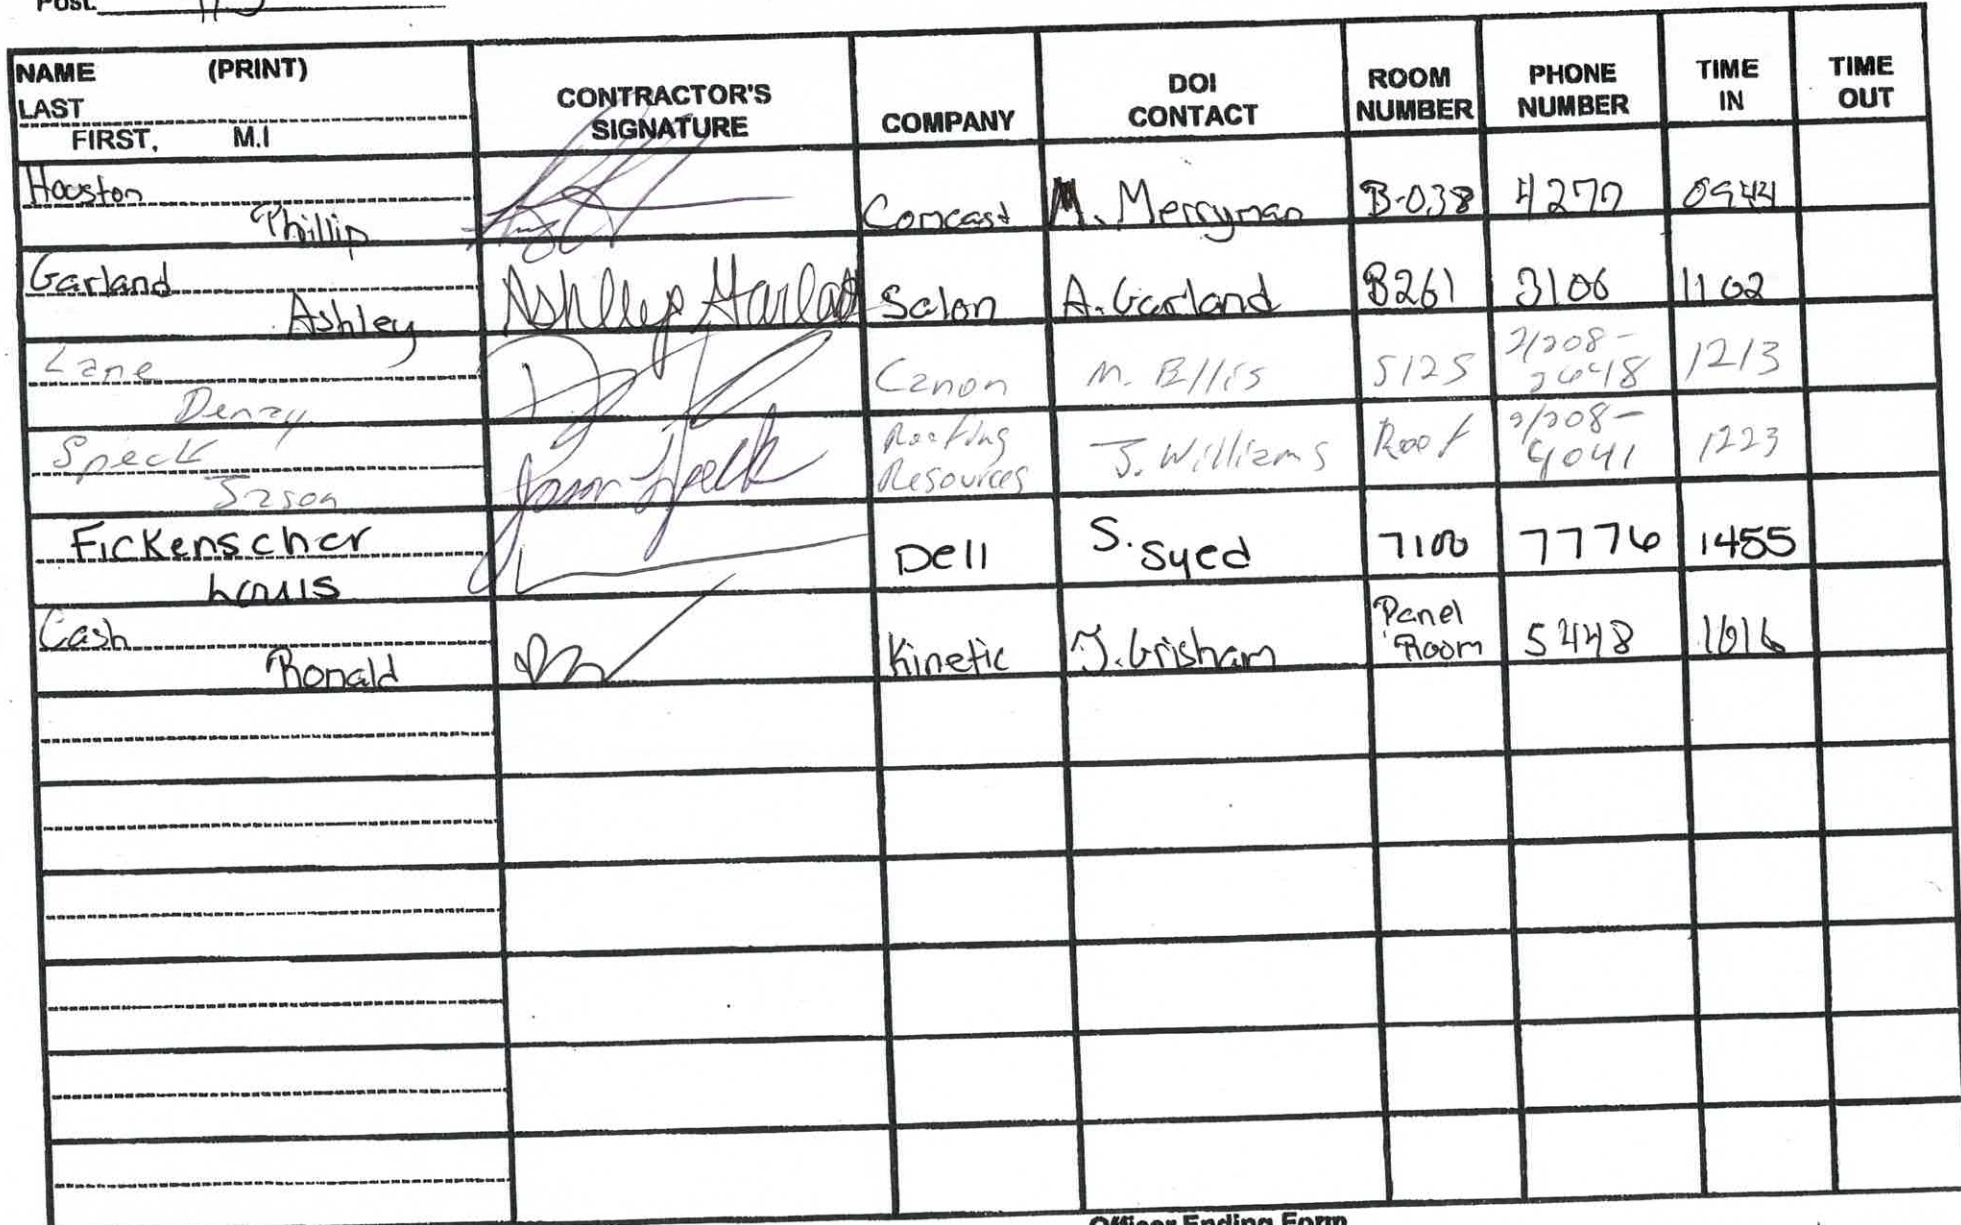 Post:
NAME (PRINT)
LAST
FIRST, M.I
CONTRACTOR'S SIGNATURE
COMPANY
DOI CONTACT
ROOM NUMBER
PHONE NUMBER
TIME IN
TIME OUT
Houston
Phillip
Comcast M. Merryman B-038 4277 0944
Garland
Ashley
Ashley Garland Salon A. Garland B261 3106 1102
Lane
Denny
Canon M. Ellis 5125 1213
Speck
Jason
Jason Speck Roofing Resources J. Williams Roof 1223
Fickenscher
Louis
Dell S. Syed 7100 7776 1455
Cash
Ronald
Kinetic J. Grisham Panel Room 5448 1616
Officer Ending Form